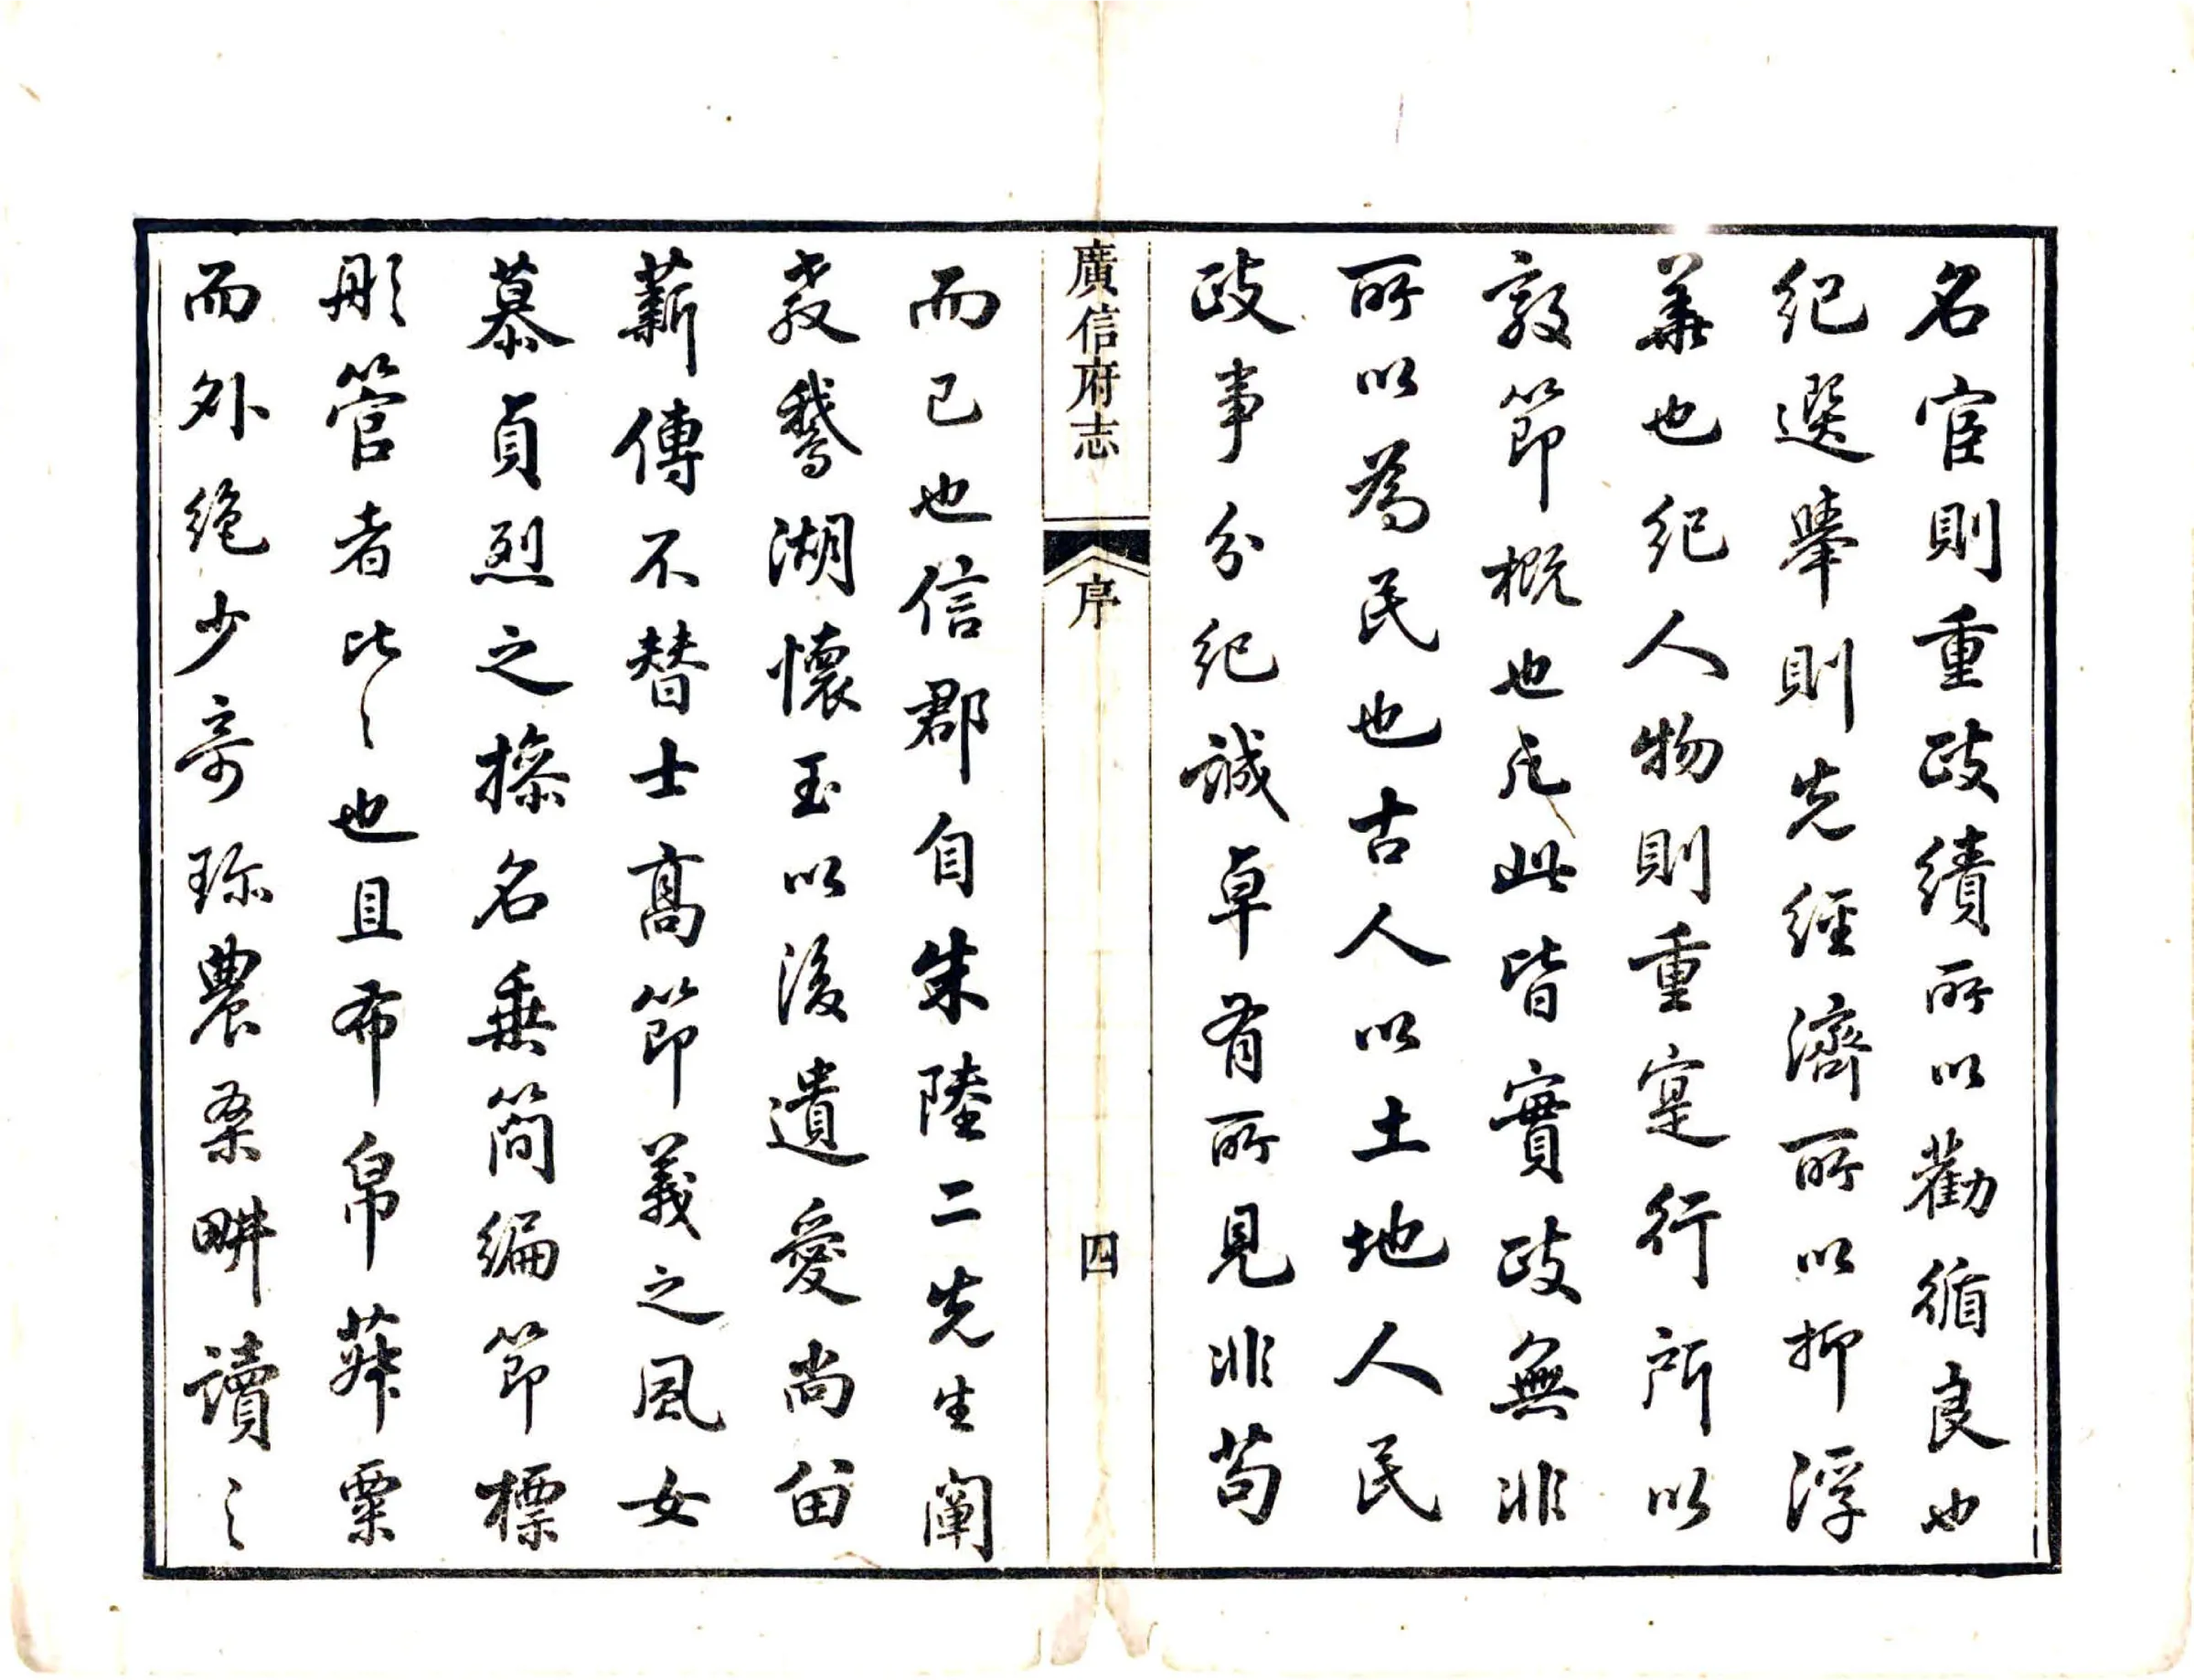 名宦則重政績所以勸循良也
紀選舉則先經濟所以抑浮
華也紀人物則重寔行所以
敦節概也凡此皆實政無非
所以為民也古人以土地人民
政事分紀誠卓有所見非苟
廣信府志
序
四
而已也信郡自朱陸二先生闡
教鵝湖懷玉以後遺愛尚留
薪傳不替士高節義之風女
慕貞烈之操名垂簡編節標
彤管者比〻也且布帛菽粟
而外絕少奇珍農桑畊讀之